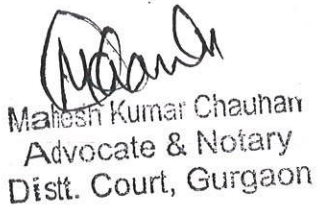 Mahesh Kumar Chauhan
Advocate & Notary
Distt. Court, Gurgaon